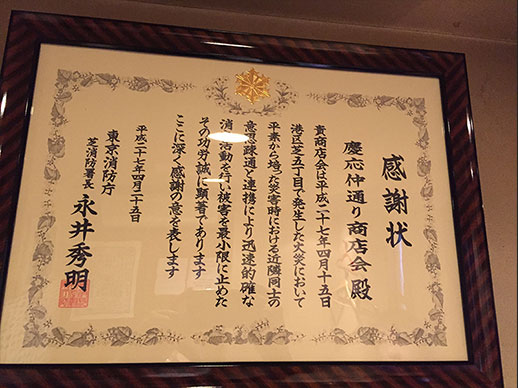 感謝状
慶応仲通り商店会殿
貴商店会は平成二十七年四月十五日
港区芝五丁目で発生した火災において
平素から培った災害時における近隣同士の
意思疎通と連携により迅速的確な
消火活動を行い被害を最小限に止めた
その功労誠に顕著であります
ここに深く感謝の意を表します
平成二十七年四月二十五日
東京消防庁
芝消防署長 永井秀明